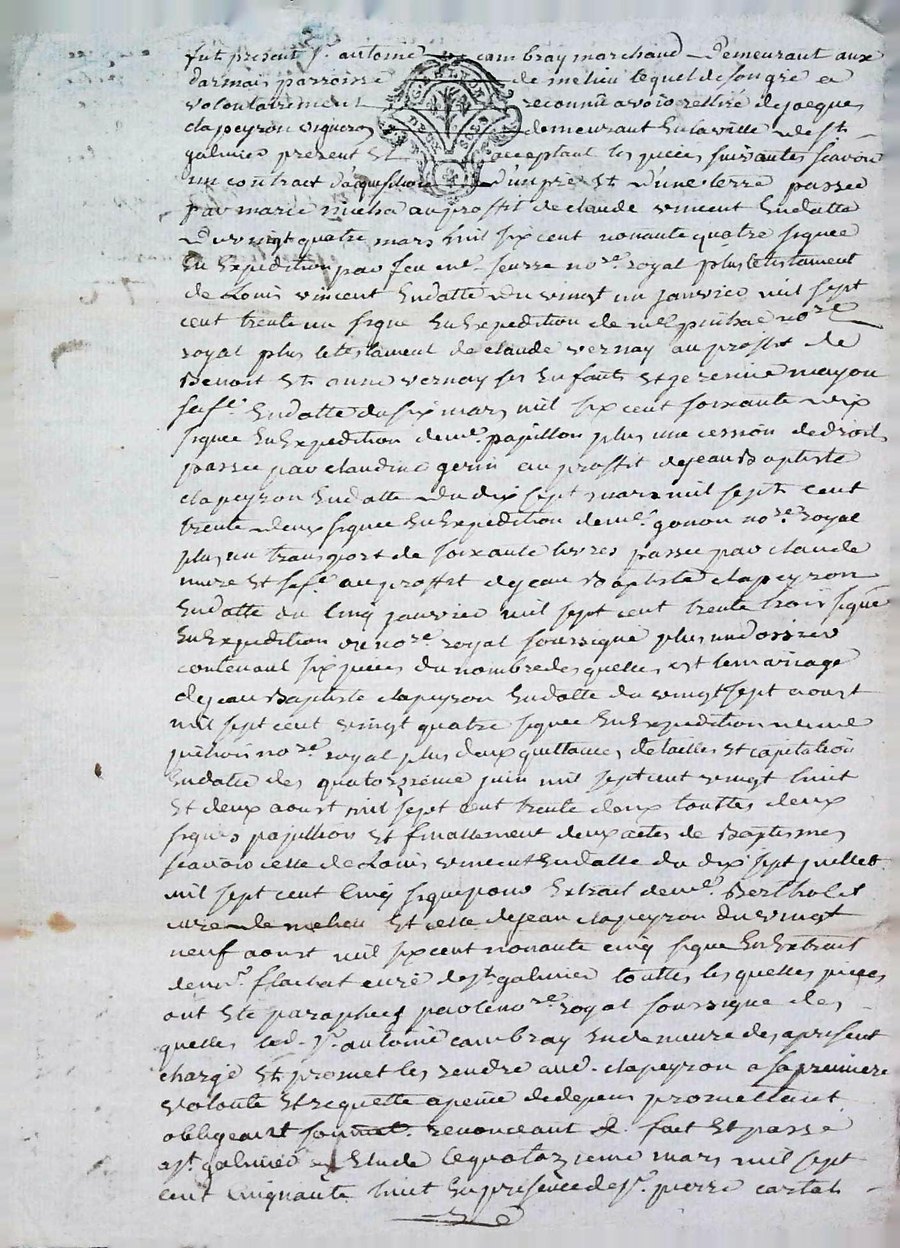 fut present Sr. antoine cambray marchand demeurant aux
darmais parroisse de melieu lequel de son gré et
volontairement reconnu avoir rettiré de jacques
clapeyron vigneron demeurant en la ville de st.
galmier present et acceptant les pieces suivantes scavoir
un contract daquisition d'un pré et d'une terre passée
par marie au proffit de claude vincent en datte
du vingt quatre mars mil six cent nonante quatre signée
en expedition par feu me. seurre nore. royal plus le testament
de Louis vincent en datte du vingt un janvier mil sept
cent trente un signé en expedition de me nore
royal plus le testament de claude vernay au proffit de
Benoit et anne vernay ses enfants et mayou
sa fe. en datte du six mars mil six cent soixante dix
signée en expedition de me. papillon plus une cession de droits
passée par claudine gerin au proffit de jean Baptiste
clapeyron en datte du dix sept mars mil sept cent
trente deux signée en expedition de me. gonon nore. royal
plus un transport de soixante livres passée par claude
mure et sa fe. au proffit de jean Baptiste clapeyron
en datte du cinq janvier mil sept cent trente trois signé
en expedition du nore. royal soussigné plus un dossier
contenant six pieces du nombre desquelles est le mariage
de jean Baptiste clapeyron en datte du vingt sept aoust
mil sept cent vingt quatre signée en expedition
nore. royal plus deux quittances de tailles et capitation
en datte des quatorzieme juin mil sept cent vingt huit
et deux aoust mil sept cent trente deux touttes deux
signés papillon et finallement deux actes de Baptismes
scavoir celle de Louis vincent en datte du dix sept juillet
mil sept cent cinq signé pour extrait de me. Bertholet
curé de melieu et celle de jean clapeyron du vingt
neuf aoust mil six cent nonante cinq signé en extrait
de mr. flachat curé de st. galmier touttes lesquelles pieces
ont eté paraphées par le nore. royal soussigné des
quelles led. Sr. antoine cambray en demeure des apresent
chargé et promet les rendre aud. clapeyron a sa premiere
volonté et requette a peine de depens promettant
obligeant renonceant &. fait et passé
a st. galmier etude le quatorzieme mars mil sept
cent cinquante huit en presence de Sr. pierre